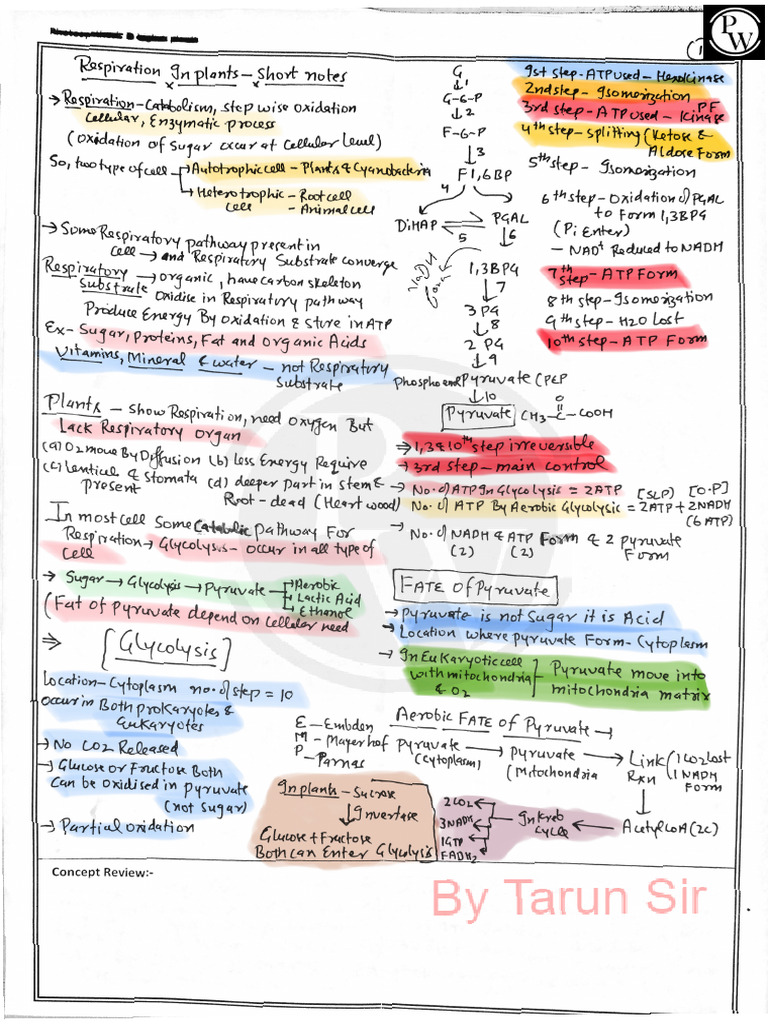 PW
Respiration In plants - Short notes
→ Respiration - Catabolism, step wise oxidation
Cellular, Enzymatic process
(Oxidation of Sugar occur at Cellular level)
So, two type of cell → Autotrophic cell - Plants & Cyanobacteria
→ Heterotrophic - Root cell
cell - Animal cell
→ Some Respiratory pathway present in
cell → and Respiratory Substrate converge
Respiratory → organic, have carbon skeleton
Substrate Oxidise in Respiratory pathway
Produce Energy By Oxidation & Store in ATP
Ex- Sugar, Proteins, Fat and Organic Acids
Vitamins, Mineral & water - not Respiratory
Substrate
Plants - Show Respiration, need Oxygen But
Lack Respiratory organ
(a) O2 move By Diffusion (b) less Energy Require
(c) lenticel & Stomata (d) deeper part in stem &
present Root - dead (Heart wood)
In most cell Some Catabolic pathway For
Respiration → Glycolysis - occur in all type of
cell
→ Sugar → Glycolysis → Pyruvate → Aerobic
→ Lactic Acid
→ Ethanol
(Fat of Pyruvate depend on cellular need
⇒ [Glycolysis]
Location - Cytoplasm no. of step = 10
Occur in Both proKaryotes &
EuKaryotes
→ No CO2 Released
→ Glucose or Fructose Both
Can be Oxidised in Pyruvate
(not Sugar)
→ Partial oxidation
G
↓1
G-6-P
↓2
F-6-P
↓3
F1,6BP
4
DiHAP ⇌ PGAL
5 ↓6
1,3BPG
↓7
3 PG
↓8
2 PG
↓9
Phosphoenol Pyruvate (PEP
↓10
Pyruvate CH3-C-COOH
O
1st step - ATP used - Hexokinase
2nd step - Isomerization
3rd step - ATP used - PF Kinase
4th step - splitting (Ketose &
Aldose Form)
5th step - Isomerization
6th step - Oxidation of PGAL
to Form 1,3BPG
(Pi Enter)
- NAD+ Reduced to NADH
7th step - ATP Form
8th step - Isomerization
9th step - H2O Lost
10th step - ATP Form
⇒ 1,3 & 10th step irreversible
→ 3rd step - main control
→ No. of ATP In Glycolysis = 2ATP [SLP] [O.P]
No. of ATP By Aerobic Glycolysis = 2ATP + 2NADH
(6 ATP)
→ No. of NADH & ATP Form & 2 pyruvate
(2) (2) Form
FATE of Pyruvate
→ Pyruvate is not Sugar it is Acid
→ Location where pyruvate Form - Cytoplasm
→ In EuKaryotic cell
with mitochondria
& O2
Pyruvate move into
mitochondria matrix
Aerobic FATE of Pyruvate →
E - Embden
M - Mayerhof
P - Parnas
Pyruvate → Pyruvate → Link
(Cytoplasm) (Mitochondria Rxn
1 CO2 lost
1 NADH
Form
↓
Acetyl CoA (2C)
In Kreb
Cycle
2CO2
3NADH
1GTP
FADH2
In plants - Sucrose
↓ Invertase
Glucose + Fructose
Both can Enter Glycolysis
Concept Review:-
By Tarun Sir